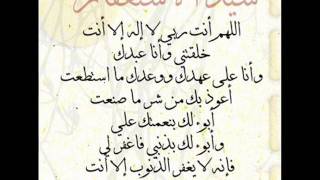 سيد الاستغفار
اللهم أنت ربي لا إله إلا أنت
خلقتني وأنا عبدك
وأنا على عهدك ووعدك ما استطعت
أعوذ بك من شر ما صنعت
أبوء لك بنعمتك علي
وأبوء لك بذنبي فاغفر لي
فإنه لا يغفر الذنوب إلا أنت